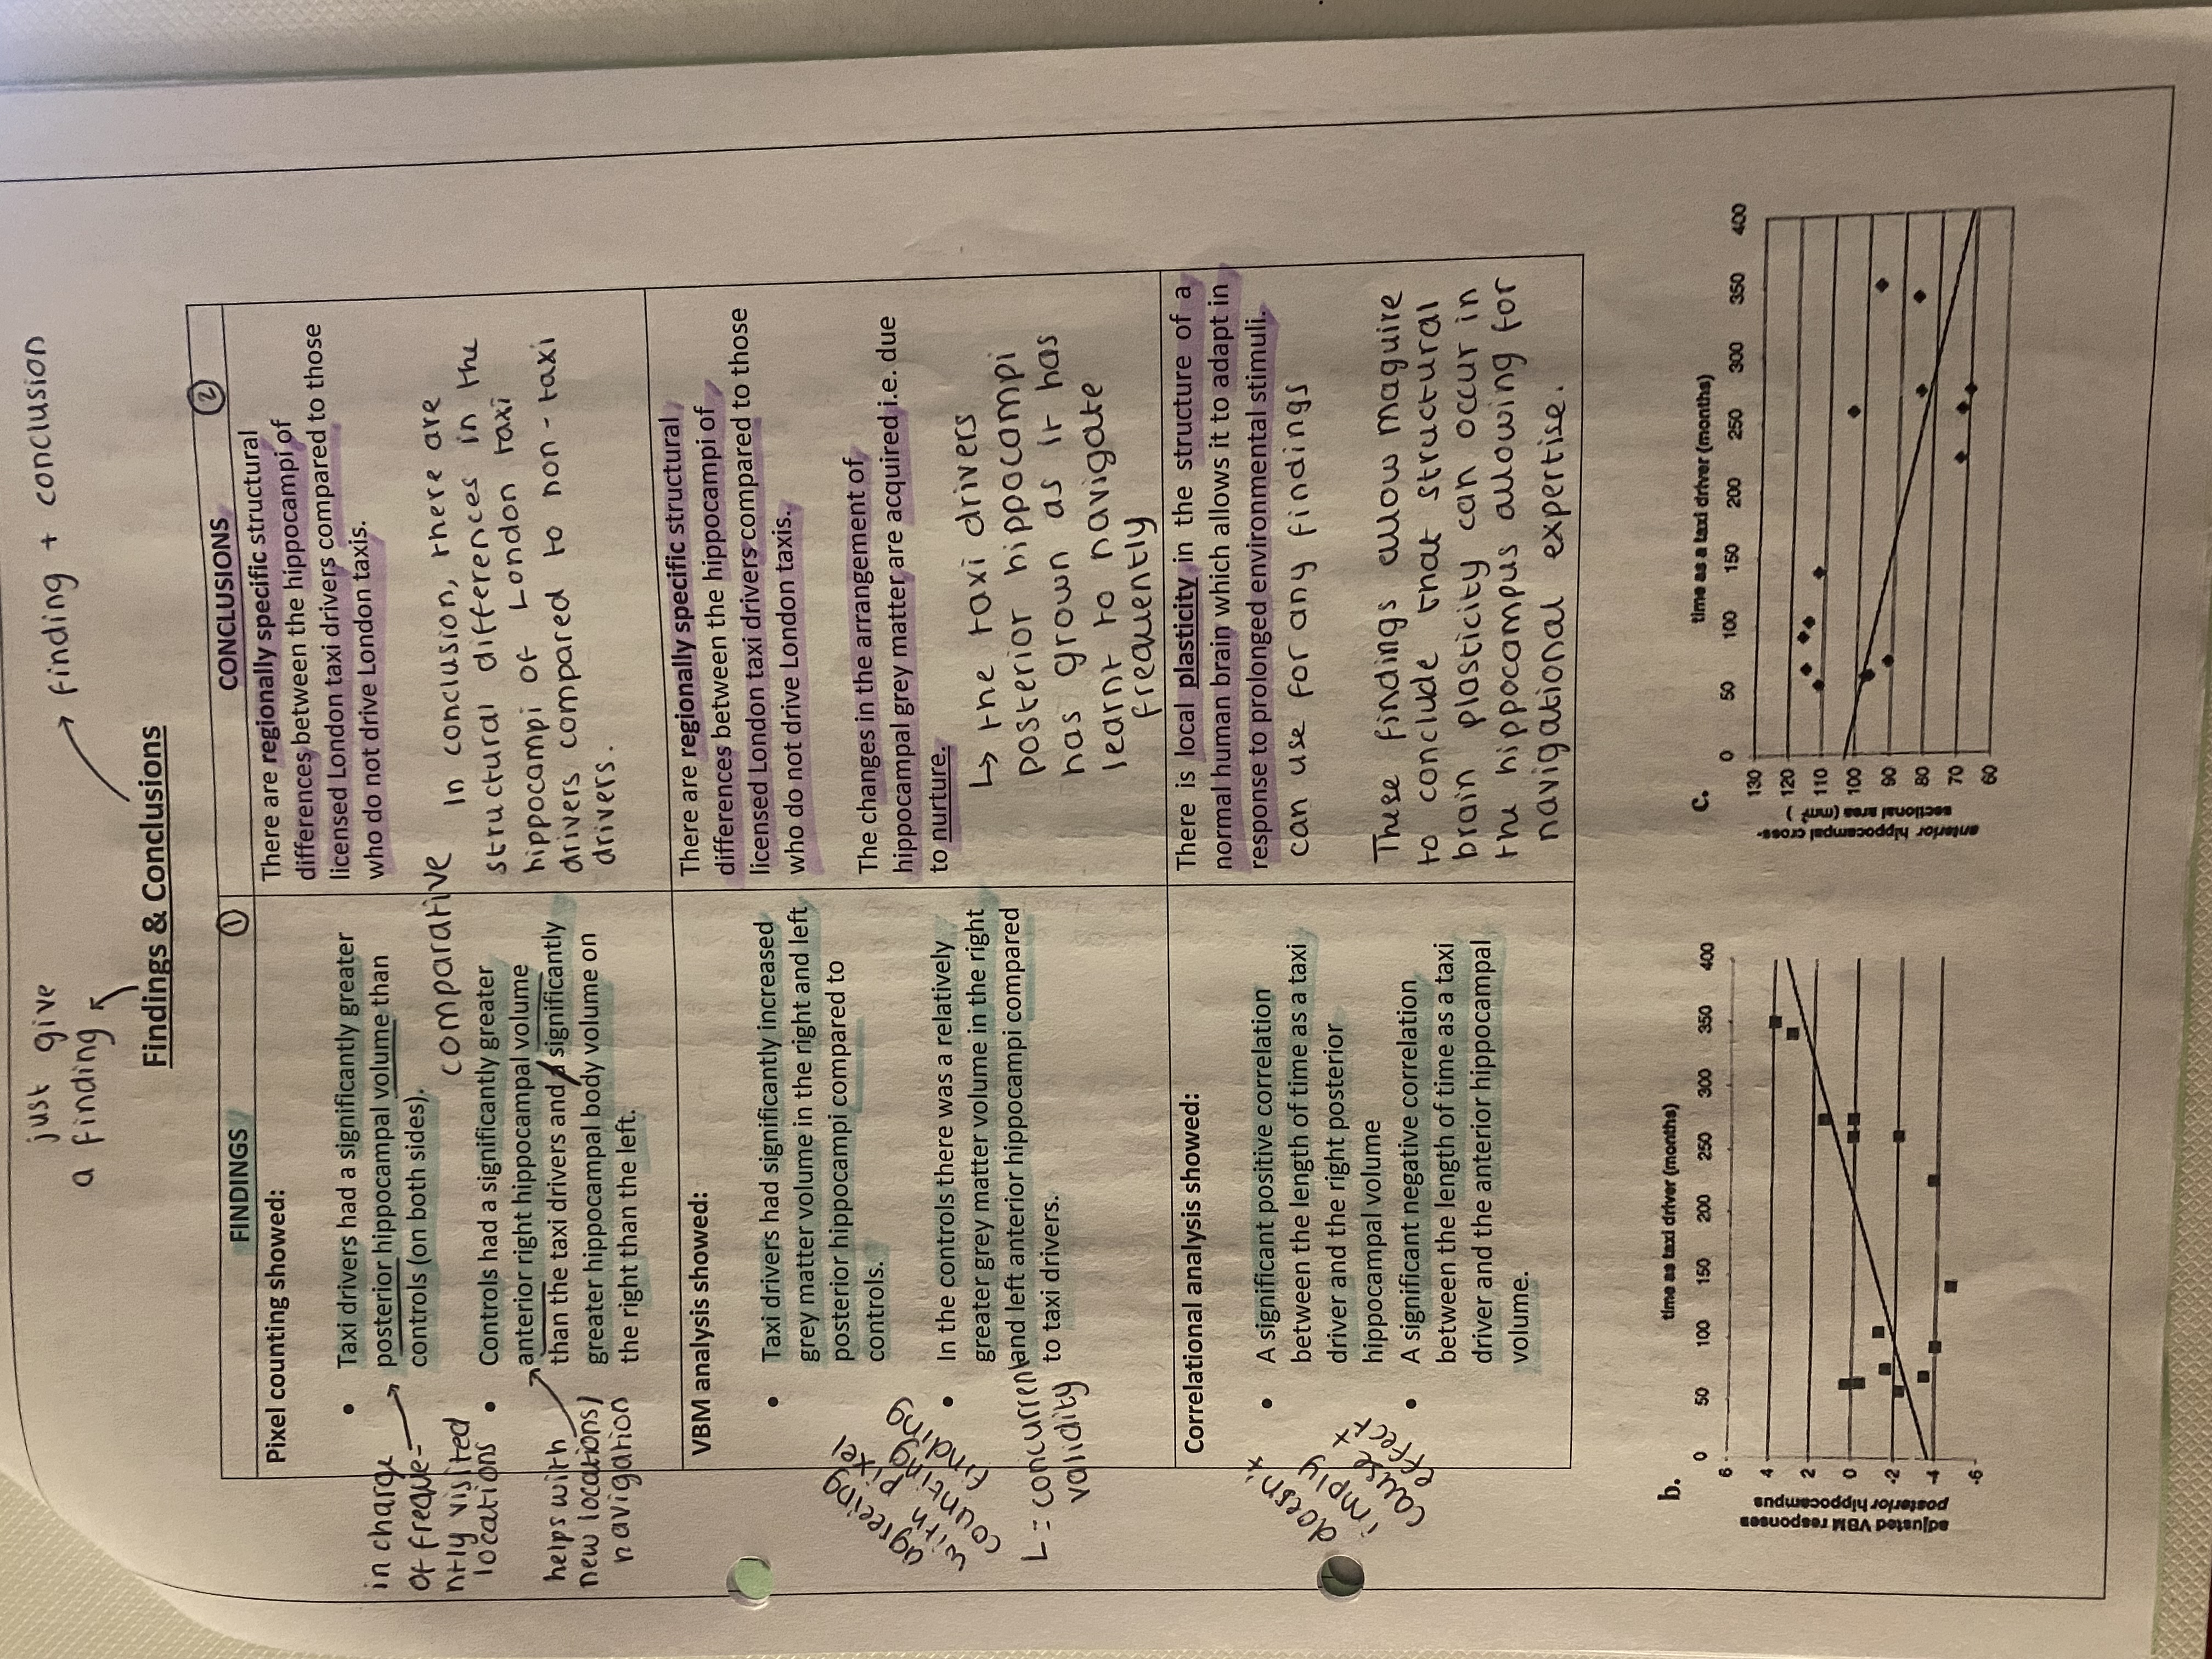 just give
a finding
→ finding + conclusion
Findings & Conclusions
FINDINGS ①
Pixel counting showed:
• Taxi drivers had a significantly greater
posterior hippocampal volume than
controls (on both sides).
comparative
• Controls had a significantly greater
anterior right hippocampal volume
than the taxi drivers and a significantly
greater hippocampal body volume on
the right than the left.
in charge
of freque-
ntly visited
locations
helps with
new locations/
navigation
CONCLUSIONS ②
There are regionally specific structural
differences between the hippocampi of
licensed London taxi drivers compared to those
who do not drive London taxis.
In conclusion, there are
structural differences in the
hippocampi of London taxi
drivers compared to non-taxi
drivers.
VBM analysis showed:
• Taxi drivers had significantly increased
grey matter volume in the right and left
posterior hippocampi compared to
controls.
• In the controls there was a relatively
greater grey matter volume in the right
and left anterior hippocampi compared
to taxi drivers.
agreeing
with pixel
counting
finding
↳ = concurrent
validity
There are regionally specific structural
differences between the hippocampi of
licensed London taxi drivers compared to those
who do not drive London taxis.
The changes in the arrangement of
hippocampal grey matter are acquired i.e. due
to nurture.
↳ the taxi drivers
posterior hippocampi
has grown as it has
learnt to navigate
frequently
Correlational analysis showed:
• A significant positive correlation
between the length of time as a taxi
driver and the right posterior
hippocampal volume
• A significant negative correlation
between the length of time as a taxi
driver and the anterior hippocampal
volume.
doesn't
imply
cause +
effect
There is local plasticity in the structure of a
normal human brain which allows it to adapt in
response to prolonged environmental stimuli.
can use for any findings
These findings allow maguire
to conclude that structural
brain plasticity can occur in
the hippocampus allowing for
navigational expertise.
b.
time as taxi driver (months)
0 50 100 150 200 250 300 350 400
adjusted VBM responses
posterior hippocampus
6
4
2
0
-2
-4
-6
c.
time as a taxi driver (months)
0 50 100 150 200 250 300 350 400
anterior hippocampal cross-
sectional area (mm² )
130
120
110
100
90
80
70
60